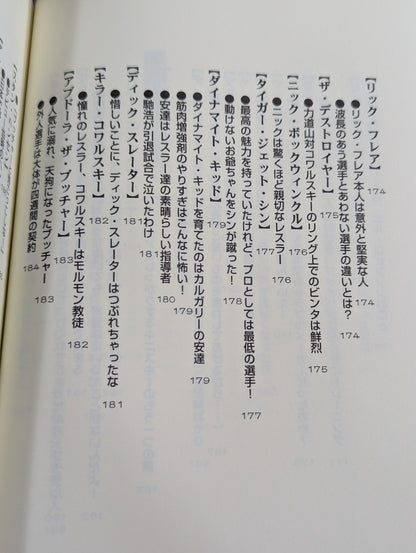 【リック・フレア】 174
●リック・フレア本人は意外と堅実な人 174
●波長のあう選手とあわない選手の違いとは? 174
【ザ・デストロイヤー】 175
●力道山対コワルスキーのリング上でのビンタは鮮烈 175
【ニック・ボックウィンクル】 176
●ニックは驚くほど親切なレスラー 176
【タイガー・ジェット・シン】 177
●最高の魅力を持っていたけれど、プロとしては最低の選手! 177
●動けないお爺ちゃんをシンが蹴った! 178
【ダイナマイト・キッド】 179
●ダイナマイト・キッドを育てたのはカルガリーの安達 179
●筋肉増強剤のやりすぎはこんなに怖い! 179
●安達はレスラー達の素晴らしい指導者 180
●馳浩が引退試合で泣いたわけ 181
【ディック・スレーター】 181
●惜しいことに、ディック・スレーターはつぶれちゃったな 181
【キラー・コワルスキー】 182
●憧れのレスラー、コワルスキーはモルモン教徒 182
【アブドーラ・ザ・ブッチャー】 183
●人気に溺れ、天狗になったブッチャー 183
●外人選手は大体が四週間の契約 184